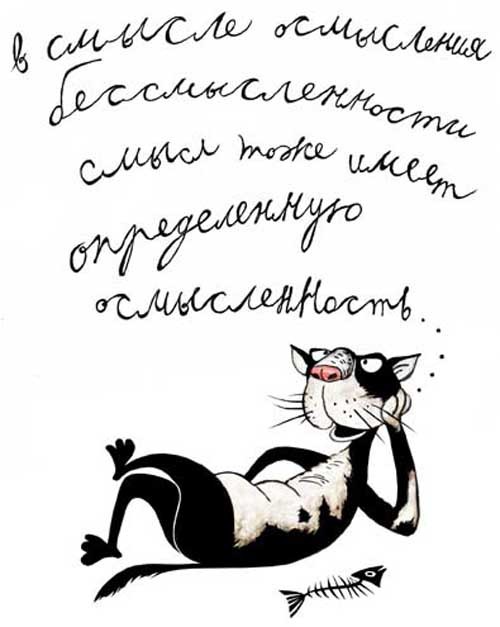 в смысле осмысления
бессмысленности
смысл тоже имеет
определенную
осмысленность...